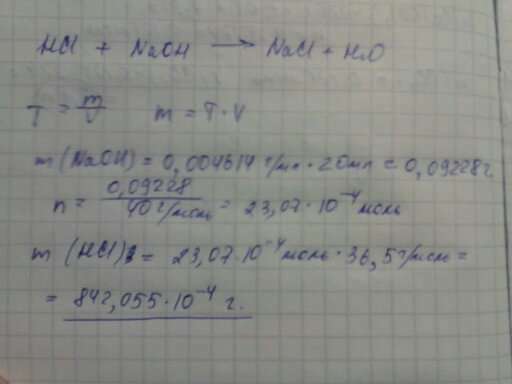 HCl + NaOH → NaCl + H2O
T = m/V   m = T · V
m (NaOH) = 0,004614 г/мл · 20мл = 0,09228 г.
n = 0,09228 / 40 г/моль = 23,07 · 10⁻⁴ моль
m (HCl) = 23,07 · 10⁻⁴ моль · 36,5 г/моль =
= 842,055 · 10⁻⁴ г.